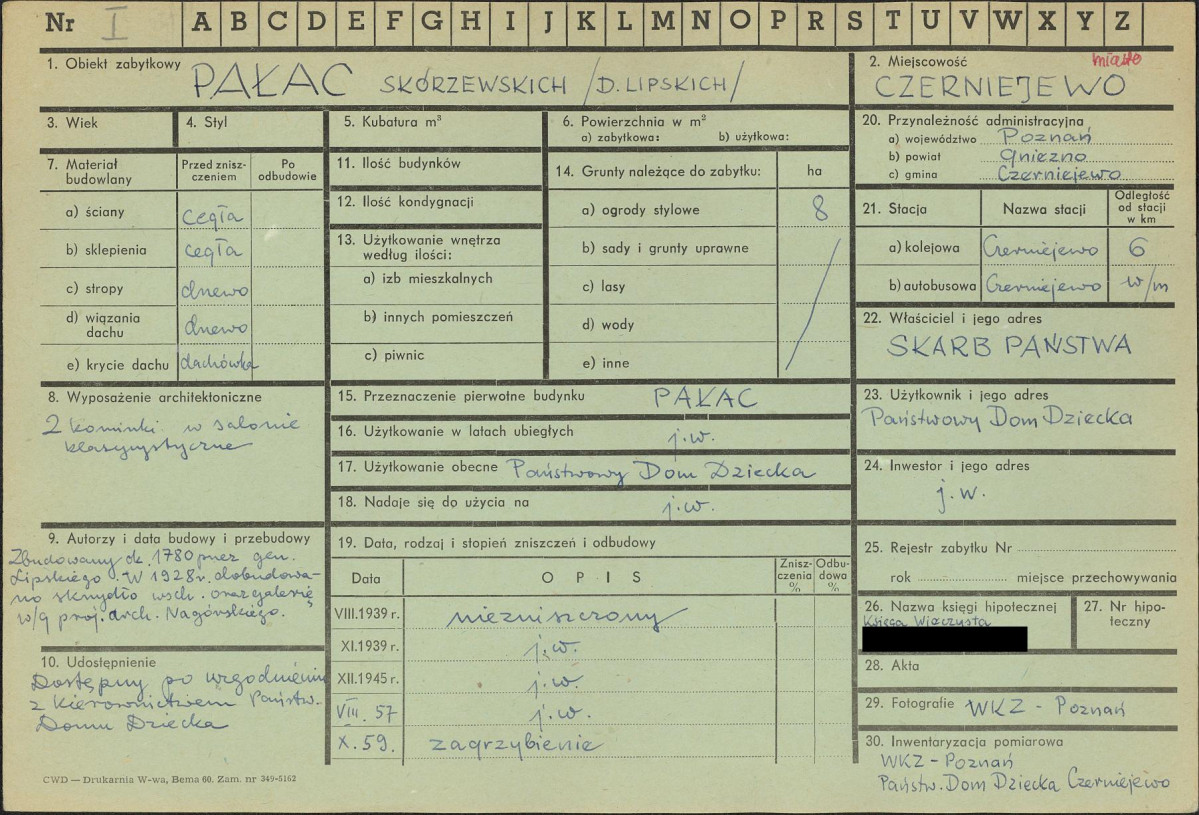 Nr I A B C D E F G H I J K L M N O P R S T U V W X Y Z
1. Obiekt zabytkowy PAŁAC SKÓRZEWSKICH /D. LIPSKICH/
2. Miejscowość miasto
CZERNIEJEWO
3. Wiek
4. Styl
5. Kubatura m³
6. Powierzchnia w m²
a) zabytkowa: b) użytkowa:
7. Materiał budowlany
Przed znisz-
czeniem
Po
odbudowie
a) ściany cegła
b) sklepienia cegła
c) stropy drewo
d) wiązania
dachu drewo
e) krycie dachu dachówka
8. Wyposażenie architektoniczne
2 kominki w salonie
klasycystyczne
9. Autorzy i data budowy i przebudowy
Zbudowany ok. 1780 przez gen.
Lipskiego. W 1928 r. dobudowa-
no skrzydło wsch. oraz galerię
w/g proj. arch. Nagórskiego.
10. Udostępnienie
Dostępny po uzgodnieniu
z Kierownictwem Państw.
Domu Dziecka
CWD — Drukarnia W-wa, Bema 60. Zam. nr 349-5162
11. Ilość budynków
12. Ilość kondygnacji
13. Użytkowanie wnętrza
według ilości:
a) izb mieszkalnych
b) innych pomieszczeń
c) piwnic
14. Grunty należące do zabytku: ha
a) ogrody stylowe 8
b) sady i grunty uprawne
c) lasy
d) wody
e) inne
15. Przeznaczenie pierwotne budynku PAŁAC
16. Użytkowanie w latach ubiegłych j.w.
17. Użytkowanie obecne Państwowy Dom Dziecka
18. Nadaje się do użycia na j.w.
19. Data, rodzaj i stopień zniszczeń i odbudowy
Data OPIS
Znisz-
czenia
%
Odbu-
dowa
%
VIII.1939 r. niezniszczony
XI.1939 r. j.w.
XII.1945 r. j.w.
VIII. 57 j.w.
X. 59. zagrzybienie
20. Przynależność administracyjna
a) województwo Poznań
b) powiat Gniezno
c) gmina Czerniejewo
21. Stacja Nazwa stacji
Odległość
od stacji
w km
a) kolejowa Czerniejewo 6
b) autobusowa Czerniejewo w/m
22. Właściciel i jego adres
SKARB PAŃSTWA
23. Użytkownik i jego adres
Państwowy Dom Dziecka
24. Inwestor i jego adres
j.w.
25. Rejestr zabytku Nr
rok miejsce przechowywania
26. Nazwa księgi hipotecznej
Księga Wieczysta
27. Nr hipo-
teczny
28. Akta
29. Fotografie WKZ - Poznań
30. Inwentaryzacja pomiarowa
WKZ - Poznań
Państw. Dom Dziecka Czerniejewo